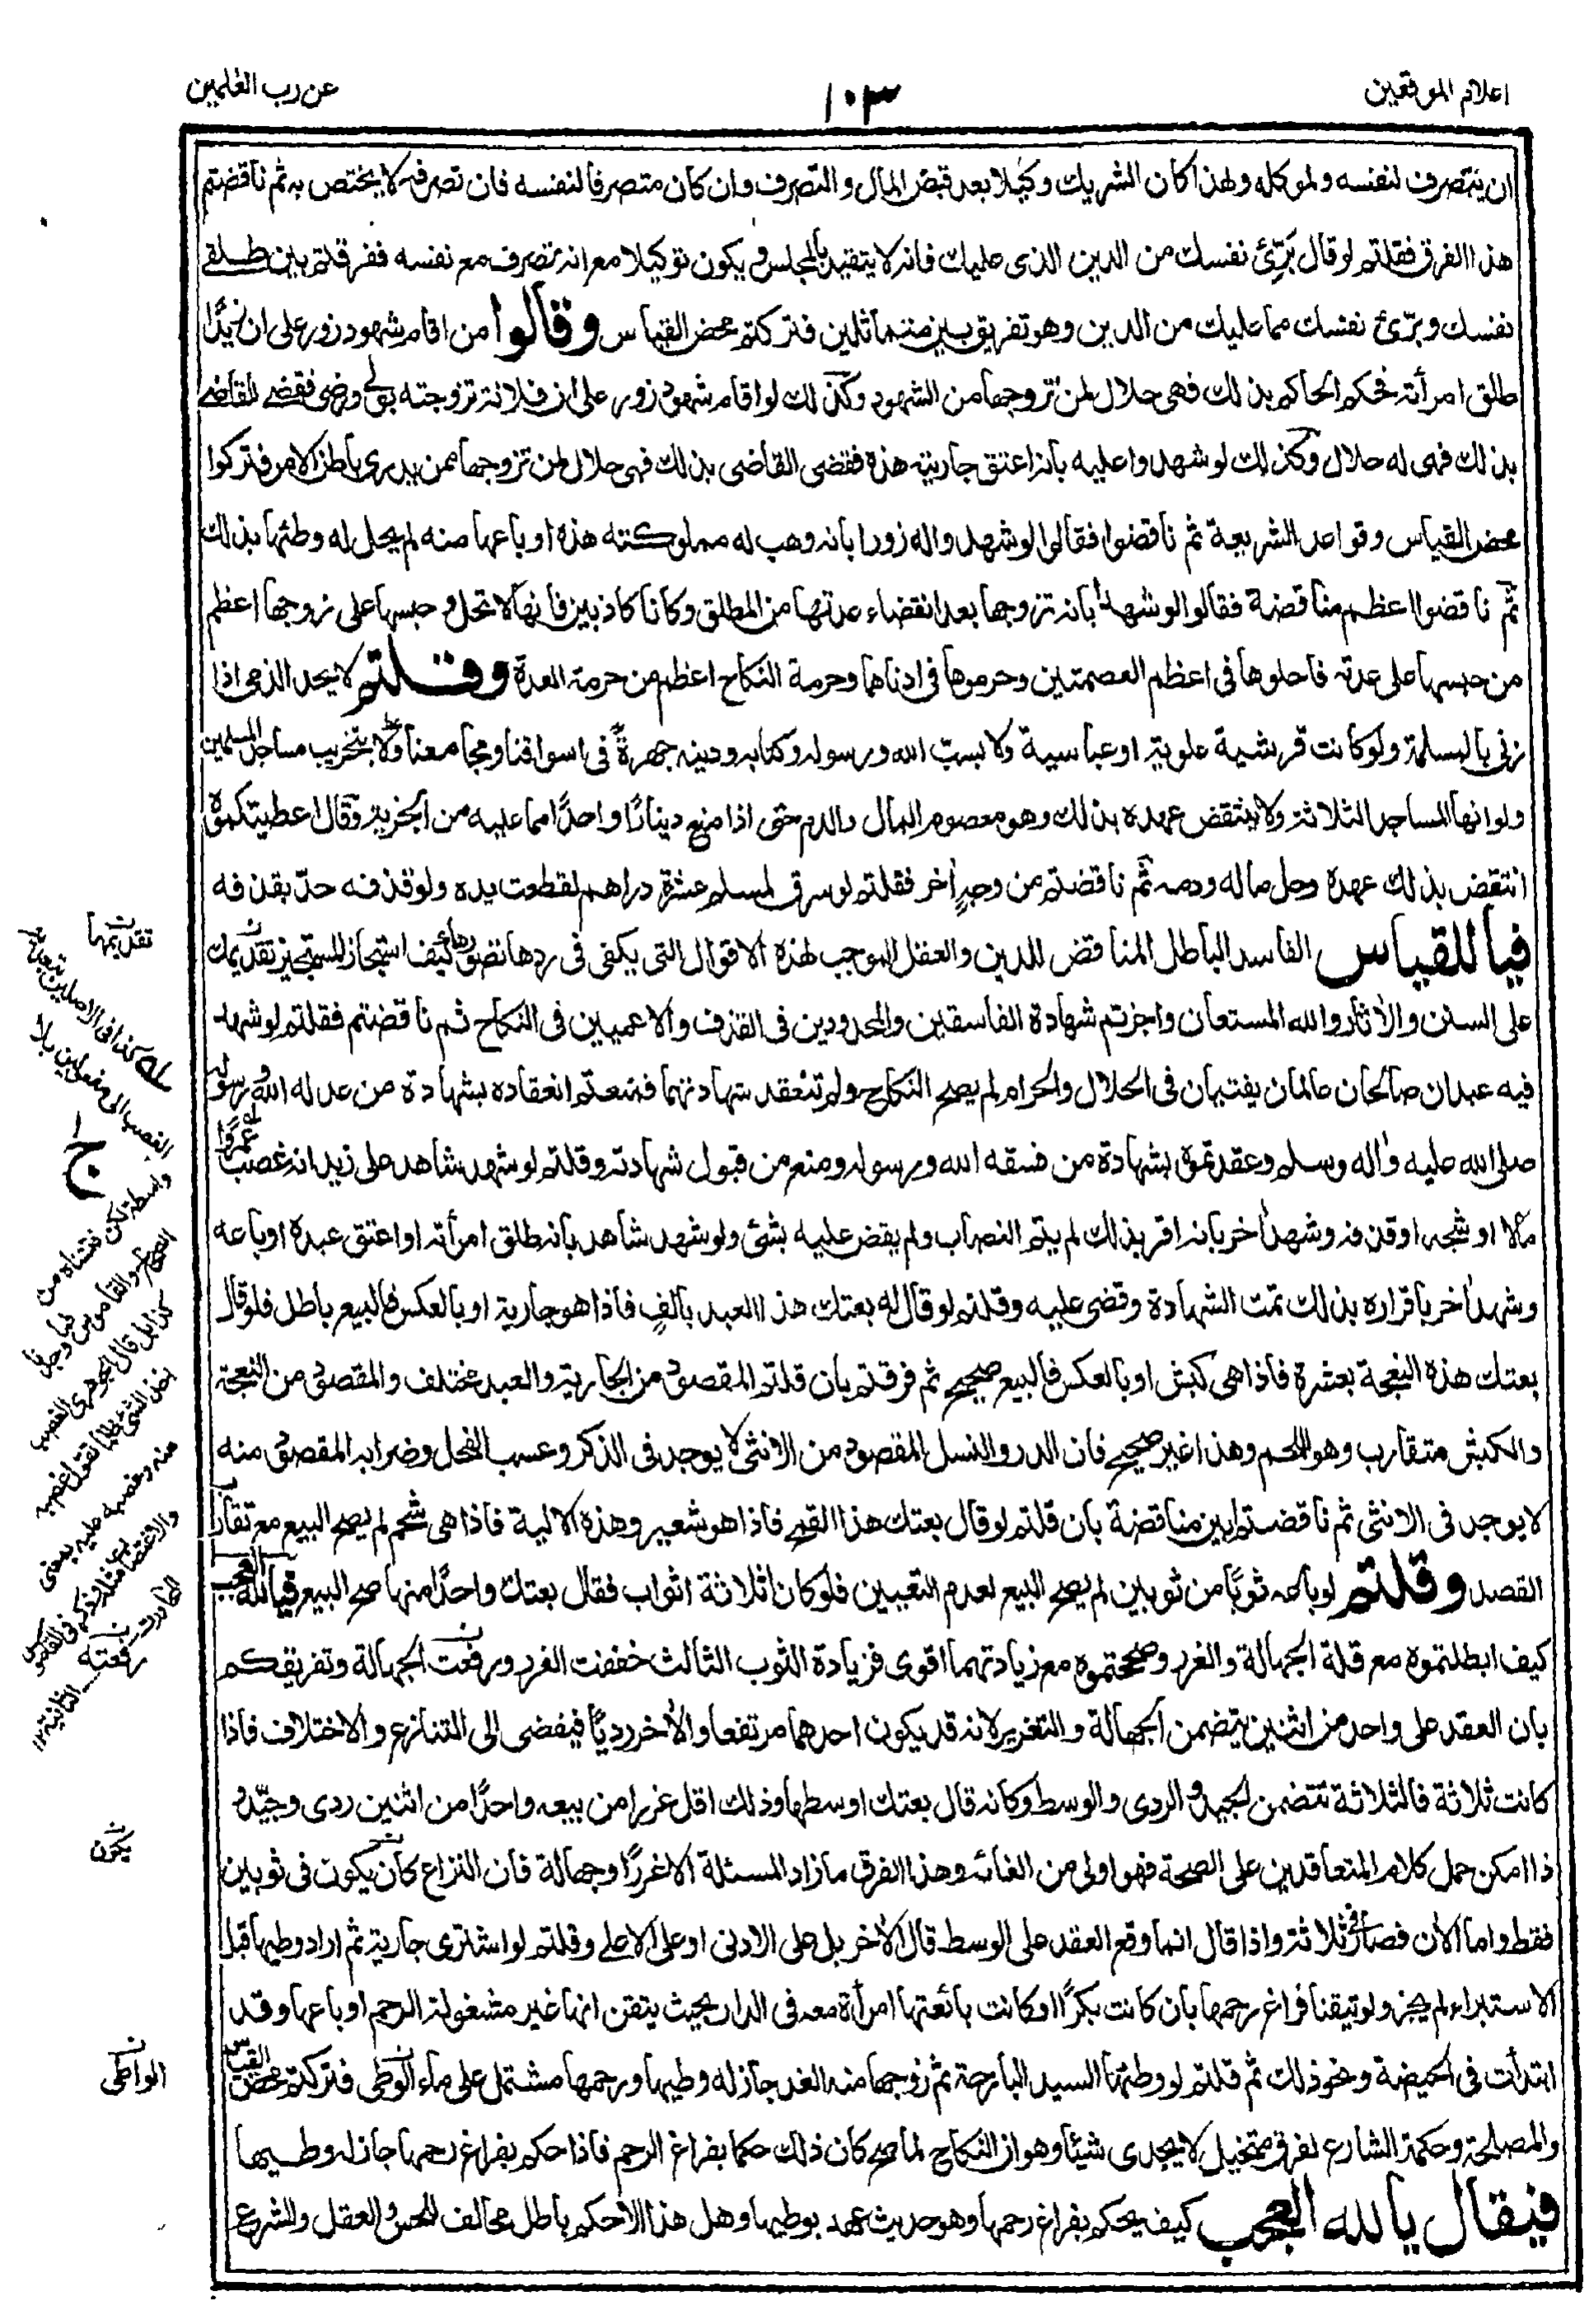 اعلام الموقعين
١٠٣
عن رب العلمين
ان يتصرف لنفسه ولموكله ولهذا كان الشريك وكيلا بعد قبض المال والتصرف وان كان متصرفا لنفسه فان تصرفه لا يختص به ثم ناقضتم
هذا الفرق فقلتم لو قال بَرِّئ نفسك من الدين الذى عليك فانه لا يتقيد بالمجلس و يكون توكيلا مع انه تصرف مع نفسه ففرقتم بين طلقى
نفسك وبرّئ نفسك مما عليك من الدين وهو تفريق بين متماثلين فتركتم محض القياس وقالوا من اقام شهود زور على ان زيدًا
طلق امرأته فحكم الحاكم بذلك فهى حلال لمن تزوجها من الشهود وكذلك لو اقام شهود زور على ان فلانة تزوجته بولى ورضى فقضى القاضى
بذلك فهى له حلال وكذلك لو شهدوا عليه بانه اعتق جاريته هذه فقضى القاضى بذلك فهى حلال لمن تزوجها ممن يدرى باطن الامر فتركوا
محض القياس وقواعد الشريعة ثم ناقضوا فقالوا لو شهدوا له زورا بانه وهب له مملوكته هذه او باعها منه لم يحل له وطئها بذلك
ثم ناقضوا اعظم مناقضة فقالوا لو شهدا بانه تزوجها بعد انقضاء عدتها من المطلق وكانا كاذبين فانها لا تحل و حبسها على زوجها اعظم
من حبسها على عدته فاحلوها فى اعظم العصمتين وحرموها فى ادناهما وحرمة النكاح اعظم من حرمة العدة وقلتم لا يحد الذمى اذا
زنى بالمسلمة ولو كانت قرشية علوية او عباسية ولا بسبّ الله ورسوله وكتابه ودينه جهرةً فى اسواقنا ومجامعنا ولا بتخريب مساجد المسلمين
ولو انها المساجد الثلاثة ولا ينتقض عهده بذلك وهو معصوم المال والدم حتى اذا منع دينارًا واحدًا مما عليه من الجزية وقال اعطيتكموه
انتقض بذلك عهده وحل ماله ودمه ثم ناقضتم من وجهٍ اٰخر فقلتم لو سرق لمسلم عشرة دراهم لقطعت يده ولو قذفه حدّ بقذفه
فيا للقياس الفاسد الباطل المناقض للدين والعقل الموجب لهذه الاقوال التى يكفى فى ردها تصورها كيف استجاز المستجيز تقديمك
على السنن والاٰثار والله المستعان واجزتم شهادة الفاسقين والمحدودين فى القذف والاعميين فى النكاح ثم ناقضتم فقلتم لو شهد
فيه عبدان صالحان عالمان يفتيان فى الحلال والحرام لم يصح النكاح ولم تنعقد شهادتهما فمنعتم انعقاده بشهادة من عدله الله ورسوله
صلى الله عليه واٰله وسلم وعقدتموه بشهادة من فسقه الله ورسوله ومنع من قبول شهادته وقلتم لو شهد شاهد على زيد انه غصب عمرًوا
مالا او شجه او قذفه وشهد اٰخر بانه اقر بذلك لم يتم النصاب ولم يقض عليه بشئ ولو شهد شاهد بانه طلق امرأته او اعتق عبده او باعه
وشهد اٰخر باقراره بذلك تمت الشهادة وقضى عليه وقلتم لو قال له بعتك هذا العبد بالفٍ فاذا هو جارية او بالعكس فالبيع باطل فلو قال
بعتك هذه النعجة بعشرة فاذا هى كبش او بالعكس فالبيع صحيح ثم فرقتم بان قلتم المقصود من الجارية والعبد مختلف والمقصود من النعجة
والكبش متقارب وهو اللحم وهذا غير صحيح فان الدر والنسل المقصود من الانثى لا يوجد فى الذكر وعسب الفحل وضرابه المقصود منه
لا يوجد فى الانثى ثم ناقضتم ابين مناقضة بان قلتم لو قال بعتك هذا القمح فاذا هو شعير وهذه الالية فاذا هى شحم لم يصح البيع مع تقارب
القصد وقلتم لو باعه ثوبًا من ثوبين لم يصح البيع لعدم التعيين فلو كان ثلاثة اثواب فقال بعتك واحدًا منها صح البيع فيا لله العجب
كيف ابطلتموه مع قلة الجهالة والغرر وصححتموه مع زيادتهما اقوى فزيادة الثوب الثالث خففت الغرر ورفعت الجهالة وتفريقكم
بان العقد على واحد من اثنين يتضمن الجهالة والتغرير لانه قد يكون احدهما مرتفعا والاٰخر رديًّا فيفضى الى التنازع والاختلاف فاذا
كانت ثلاثة فالثلاثة تتضمن الجيد والردى والوسط وكانه قال بعتك اوسطها وذلك اقل غررا من بيعه واحدًا من اثنين ردى وجيّد و
ذا امكن حمل كلام المتعاقدين على الصحة فهو اولى من الغائه وهذا الفرق ما زاد المسئلة الا غررًا وجهالة فان النزاع كان يكون فى ثوبين
فقط واما الاٰن فصار فى ثلاثة واذا قال انما وقع العقد على الوسط قال الاٰخر بل على الادنى او على الاعلى وقلتم لو اشترى جارية ثم اراد وطيها قبل
الاستبراء لم يجز ولو تيقنا فراغ رحمها بان كانت بكرًا او كانت بائعتها امرأة معه فى الدار بحيث يتقن انها غير مشغولة الرحم او باعها وقد
ابتدأت فى الحيضة ونحو ذلك ثم قلتم لو وطئها السيد البارحة ثم زوجها منه الغد جاز له وطيها ورحمها مشتمل على ماء الوطى فتركتم محض القياس
والمصلحة وحكمة الشارع لفرق متخيل لا يجدى شيئا وهو ان النكاح لما صح كان ذلك حكما بفراغ الرحم فاذا حكم بفراغ رحمها جاز له وطيها
فيقال يا لله العجب كيف يحكم بفراغ رحمها وهو حديث عهد بوطيها وهل هذا الا حكم باطل مخالف للحس والعقل والشرع
تقديمها
سله كذا فى الاصلين بتعدية
الغصب الى مفعولين بلا
واسطة لكن فتشناه من
الصحاح والقاموس فما وجدنا
كذا بل قال الجوهرى الغصب
اخذ الشئ ظلما تقول غصبه
منه وغصبه عليه بمعنى
والاغتصاب مثله وذكر فى القاموس
رفعته
يكون
الواطى